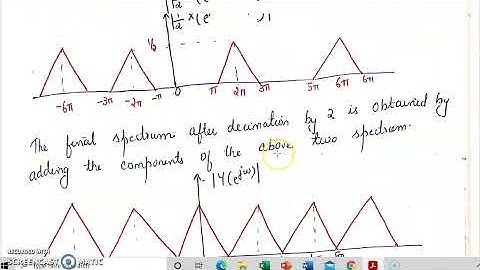 ½ x (e
½
-6π -3π -2π -π 0 π 2π 3π 5π 6π 6π
The final spectrum after decimation by 2 is obtained by
adding the components of the above two spectrum.
|Y(e^jω)|
RECORDED WITH
SCREENCAST MATIC